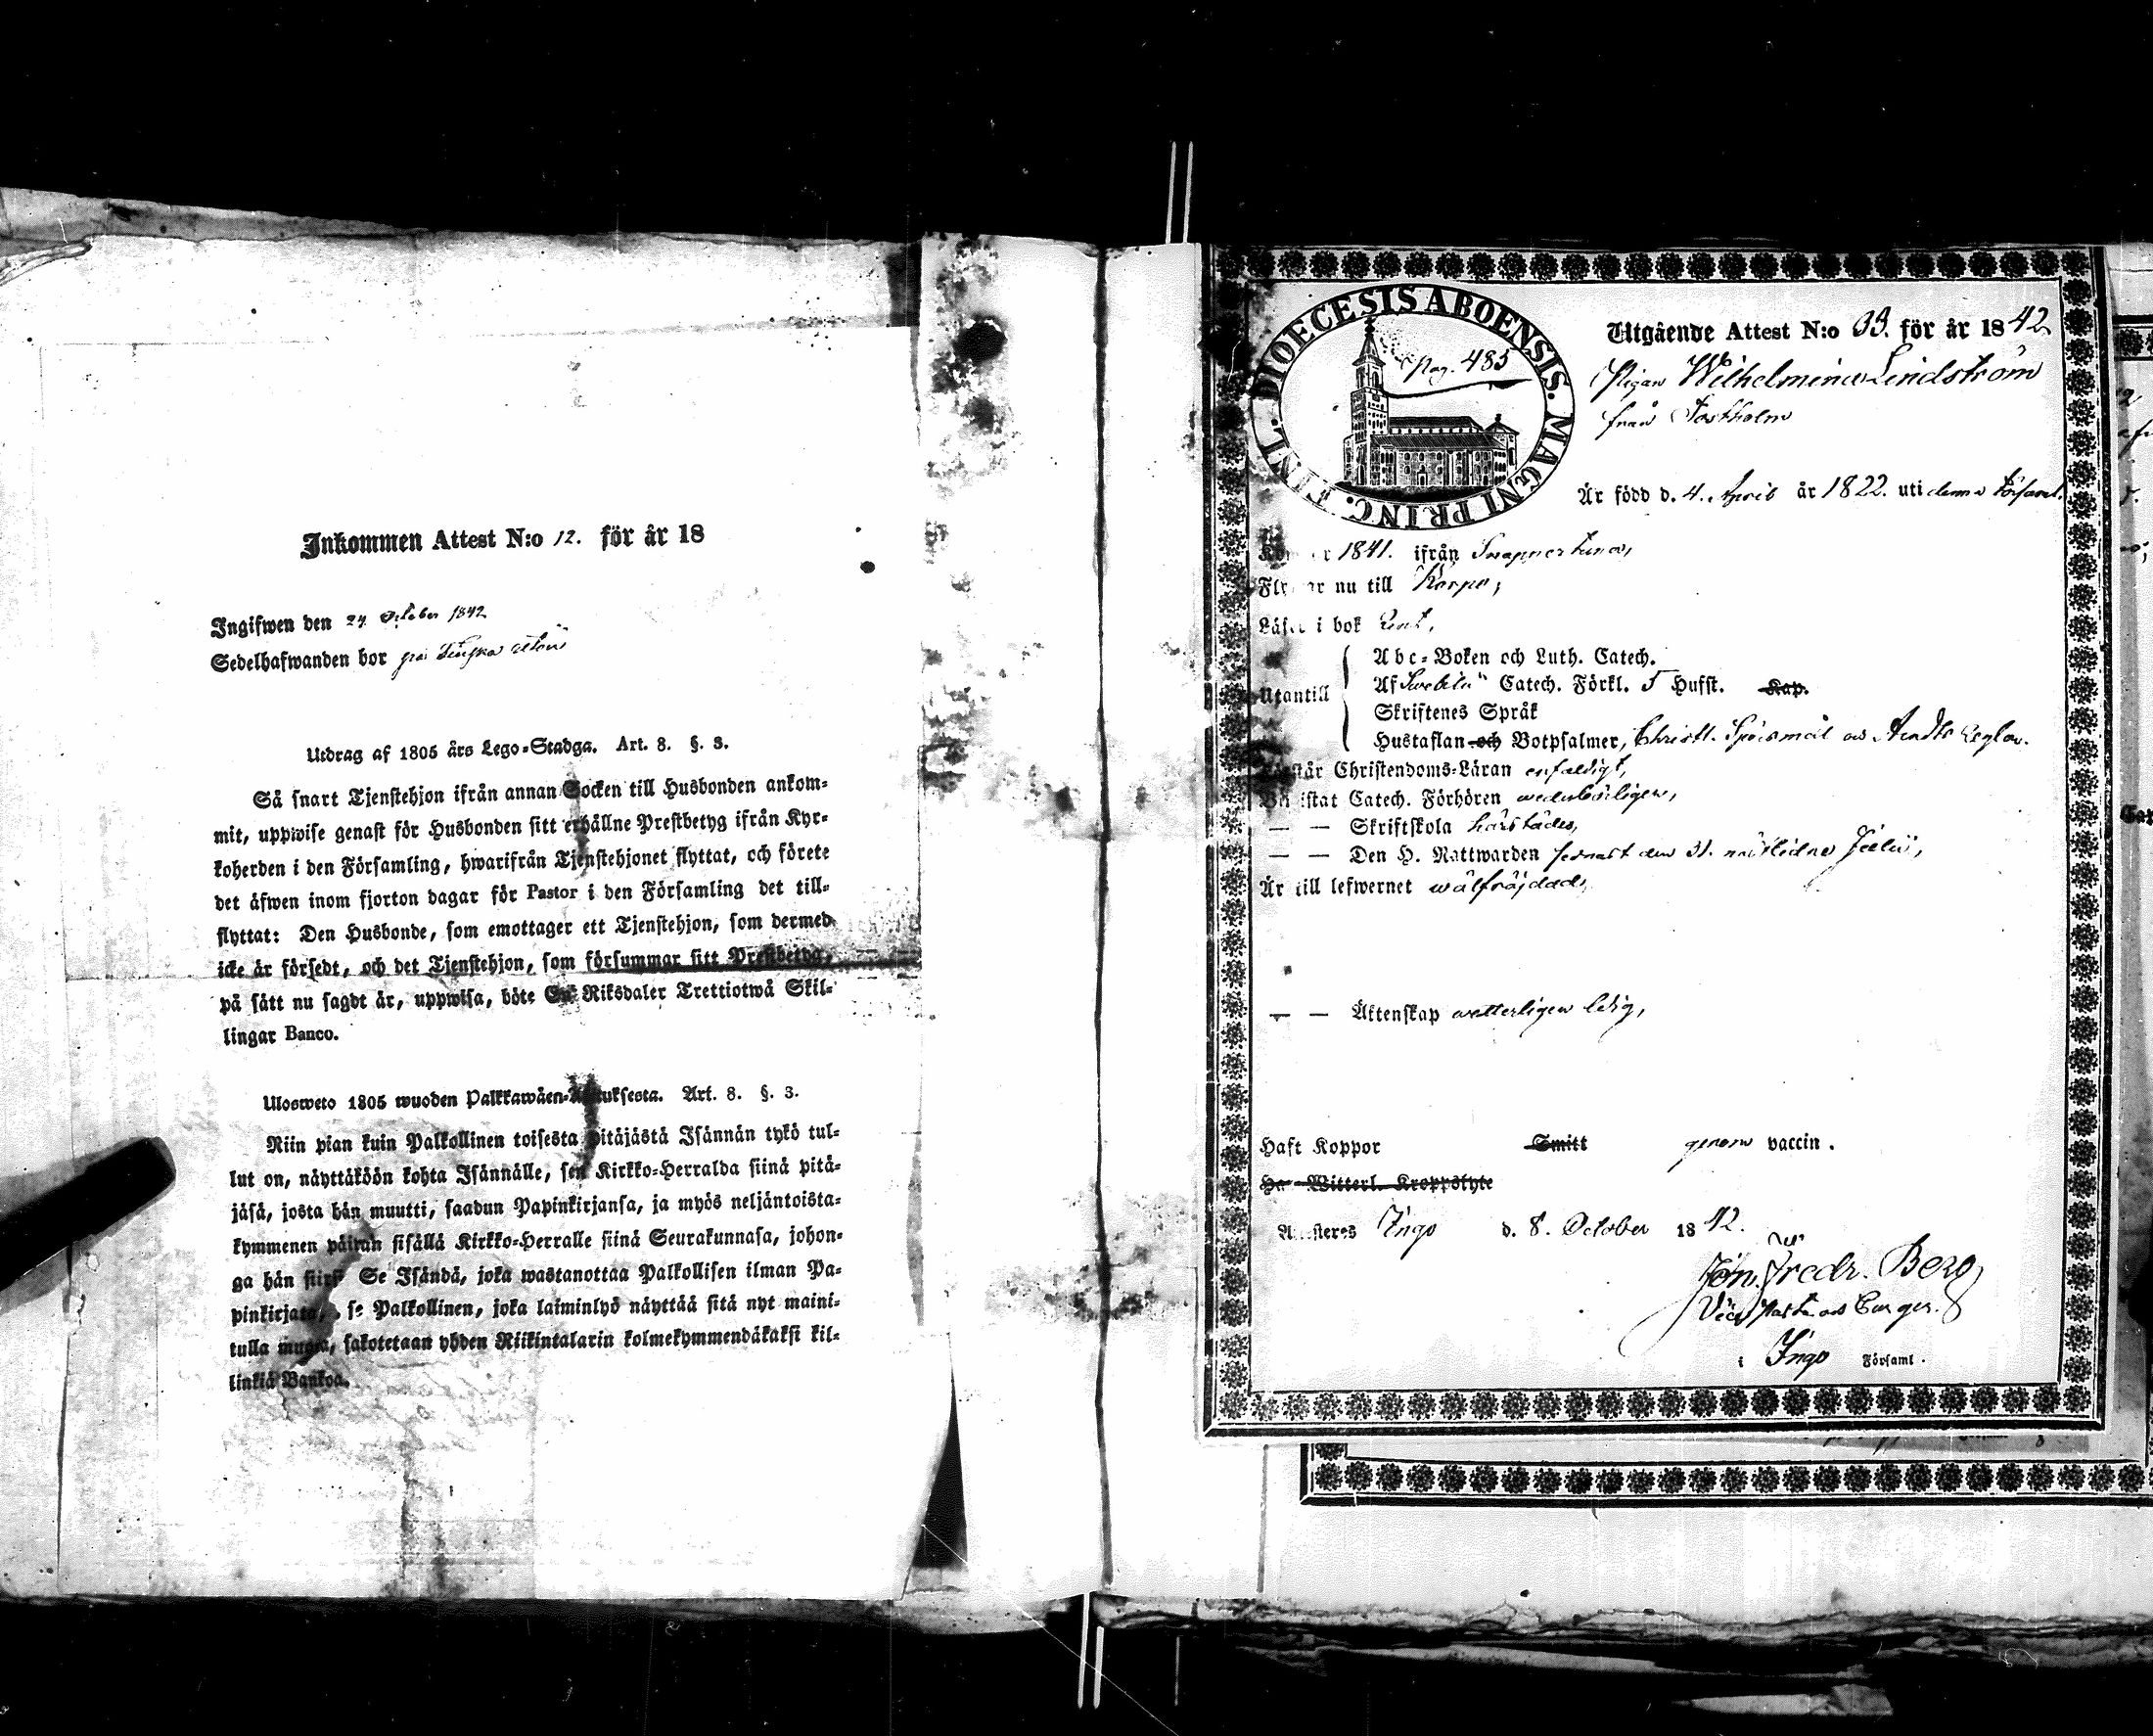 Inkommen Attest N:o 12. för år 18
Ingifwen den 24 October 1842
Sedelhafwanden bor på
Utdrag af 1805 års Lego-Stadga. Art. 8. §. 3.
Så snart Tjenstehjon ifrån annan Socken till Husbonden ankom-
mit, uppwise genast för Husbonden sitt erhållne Prestbetyg ifrån Kyr-
koherden i den Församling, hwarifrån Tjenstehjonet flyttat, och förete
det äfwen inom fjorton dagar för Pastor i den Församling det till-
flyttat: Den Husbonde, som emottager ett Tjenstehjon, som dermed
icke är försedt, och det Tjenstehjon, som försummar sitt Prestbetyg,
på sätt nu sagdt är, uppwisa, böte En Riksdaler Trettiotwå Skil-
lingar Banco.
Ulosweto 1805 wuoden Palkkawäen-Asetuksesta. Art. 8. §. 3.
Niin pian kuin Palkollinen toisesta pitäjästä Isännän tykö tul-
lut on, näyttäköön kohta Isännälle, sen Kirkko-Herralda siinä pitä-
jäsä, josta hän muutti, saadun Papinkirjansa, ja myös neljäntoista-
kymmenen päiwän sisällä Kirkko-Herralle siinä Seurakunnasa, johon-
ga hän siirsi Se Isändä, joka wastanottaa Palkollisen ilman Pa-
pinkirjata, se Palkollinen, joka laiminlyö näyttää sitä nyt maini-
tulla muotoa, sakotetaan yhden Riikintalarin kolmekymmendäkaksi kil-
linkiä Bankoa.
DIOECESIS ABOENSIS. MAGNI PRINC. FINL.
Pag. 485
Utgående Attest N:o 93. för år 1842
Pigan Wilhelmina Lindström
från Tostholm
Är född d. 4. April år 1822. uti denna Församl.
1841. ifrån Snappertuna,
nu till Korpo,
i bok rent,
Utantill
Abc-Boken och Luth. Catech.
Af Swebilii Catech. Förkl. 5 Hufst. Kap.
Skriftenes Språk
Hustaflan och Botpsalmer, Christl. Spörsmål
Christendoms-Läran enfaldigt,
Catech. Förhören wederbörligen,
— — Skriftskola härstädes,
— — Den H. Nattwarden senast den 31. nästlidne Julii,
Är till lefwernet wälfräjdad,
— — Äktenskap witterligen ledig,
Haft Koppor Smitt genom vaccin.
Witterl. Kroppslyte
Ingo d. 8. October 1842.
Joh. Fredr. Berg
Vice Pastor
i Ingo Församl.